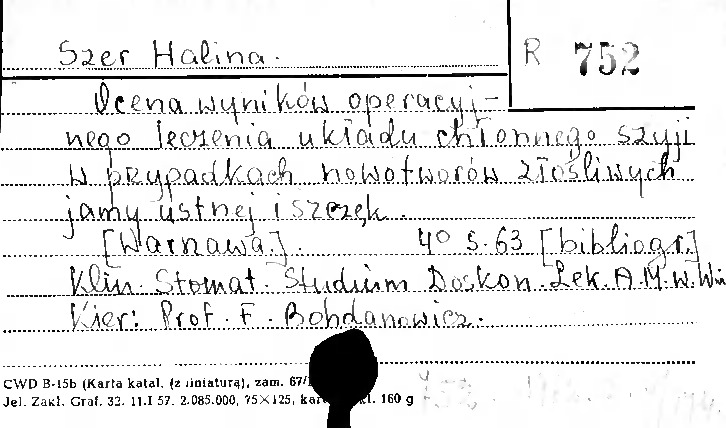 Szer Halina.
R 752
Ocena wyników operacyj-
nego leczenia układu chłonnego szyji
w przypadkach nowotworów złośliwych
jamy ustnej i szczęk.
[Warnawa.]. 4° s. 63 [bibliogr.]
Klin. Stomat. Studium Doskon. Lek. A.M. w. Wa
Kier: Prof. F. Bohdanowicz.
CWD B-15b (Karta katal. (z liniaturą), zam. 67/
Jel. Zakł. Graf. 32. 11.I 57. 2.085.000, 75×125, kl. 160 g